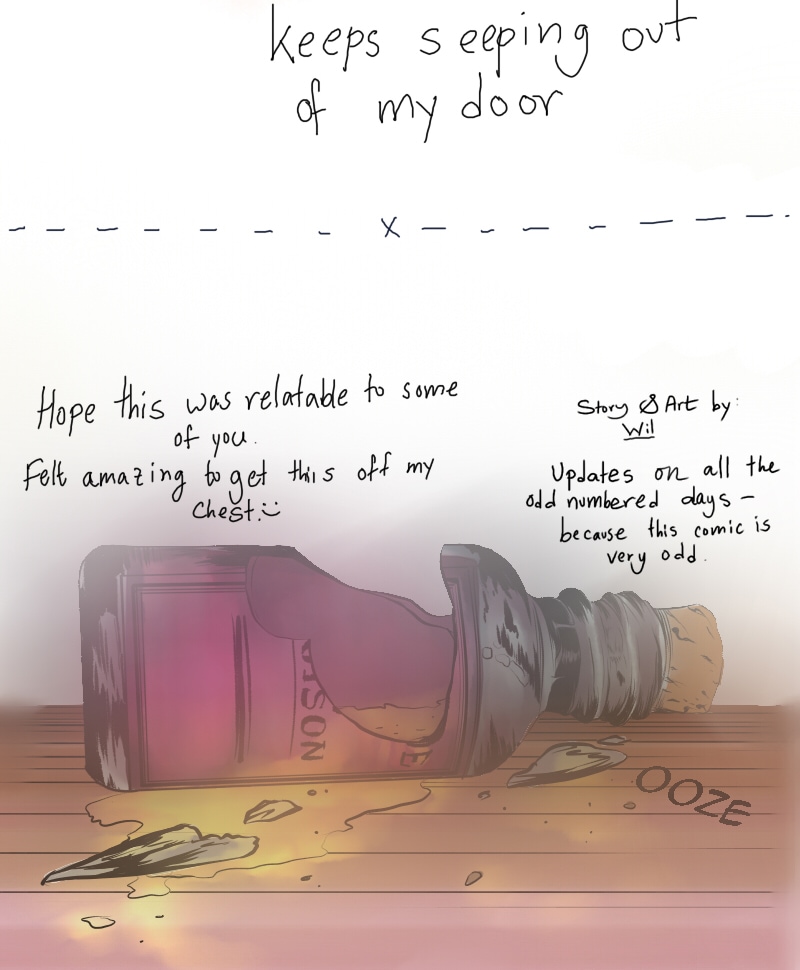 keeps seeping out
of my door
x
Hope this was relatable to some
of you.
Felt amazing to get this off my
chest. :)
Story & Art by:
Wil
Updates on all the
odd numbered days -
because this comic is
very odd.
OOZE